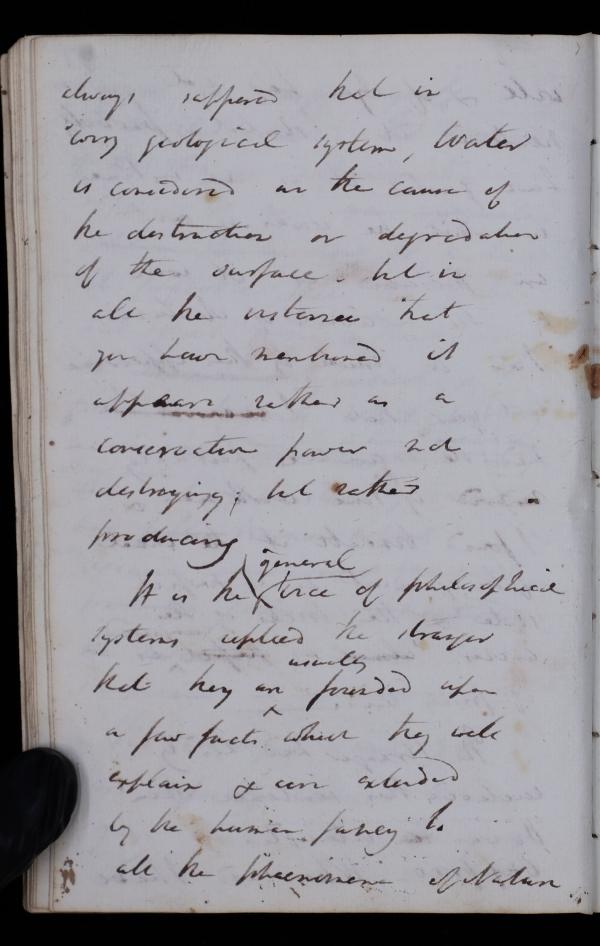 always supposed that in
every geological system, Water
is considered as the cause of
the destruction or degradation
of the surface. but in
all the instances that
you have mentioned it
appears rather as a
conservative power not
destroying; but rather
producing
general
It is the vice of philosophical
systems replied the stranger
usually
that they are founded upon
a few facts which they well
explain & are extended
by the human fancy to
all the phaenomena of Nature